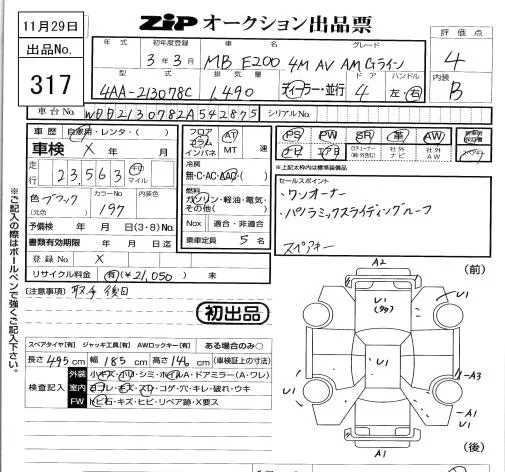 11月29日
ZIP オークション出品票
出品No.
317
年式 初年度登録 車名 グレード
3年3月 MB E200 4M AV AM Gライン
型式 排気量 ドア ハンドル
4AA-213078C 1,490 ディーラー・並行 4 左・右
評価点
4
内装
B
車台No. WDD2130782A542875 シリアルNo.
車歴 自家用・レンタ・( )
車検 X 年 月
走行 23,563 km マイル
色 ブラック
(元色)
カラーNo.
197
予備検 年 月 日(3・8)No.
書類有効期限 年 月 日迄
登録No. X
リサイクル料金 有(¥21,050) 未
フロア コラム インパネ
AT MT 速
冷房
無・C・AC・AAC・( )
燃料
ガソリン・軽油・電気・その他( )
Nox 適合・非適合
乗車定員 5 名
PS PW SR 革 AW
ナビ エアB 社外ナビ 社外AW
※上記太枠内は標準装備品
セールスポイント
・ワンオーナー
・パノラミックスライディングルーフ
スペアキー
(注意事項) 取・予 後日
初出品
※ご記入の際はボールペンで強くご記入下さい。
スペアタイヤ[有] ジャッキ工具[有] AWロックキー[有] ある場合のみ○
長さ 495cm 幅 185cm 高さ 146cm (車検証上の寸法)
検査記入
外装 小キズ・小凹・シミ・ホイルA・ドアミラー(A・ワレ)
室内 ヨゴレ・キズ・スレ・コゲ・穴・キレ・破れ・ウキ
FW トビ石・キズ・ヒビ・リペア跡・X要ス
(前)
A2
U1
U1
(多)
U1
U1
A3
A1
U1
A1
(後)